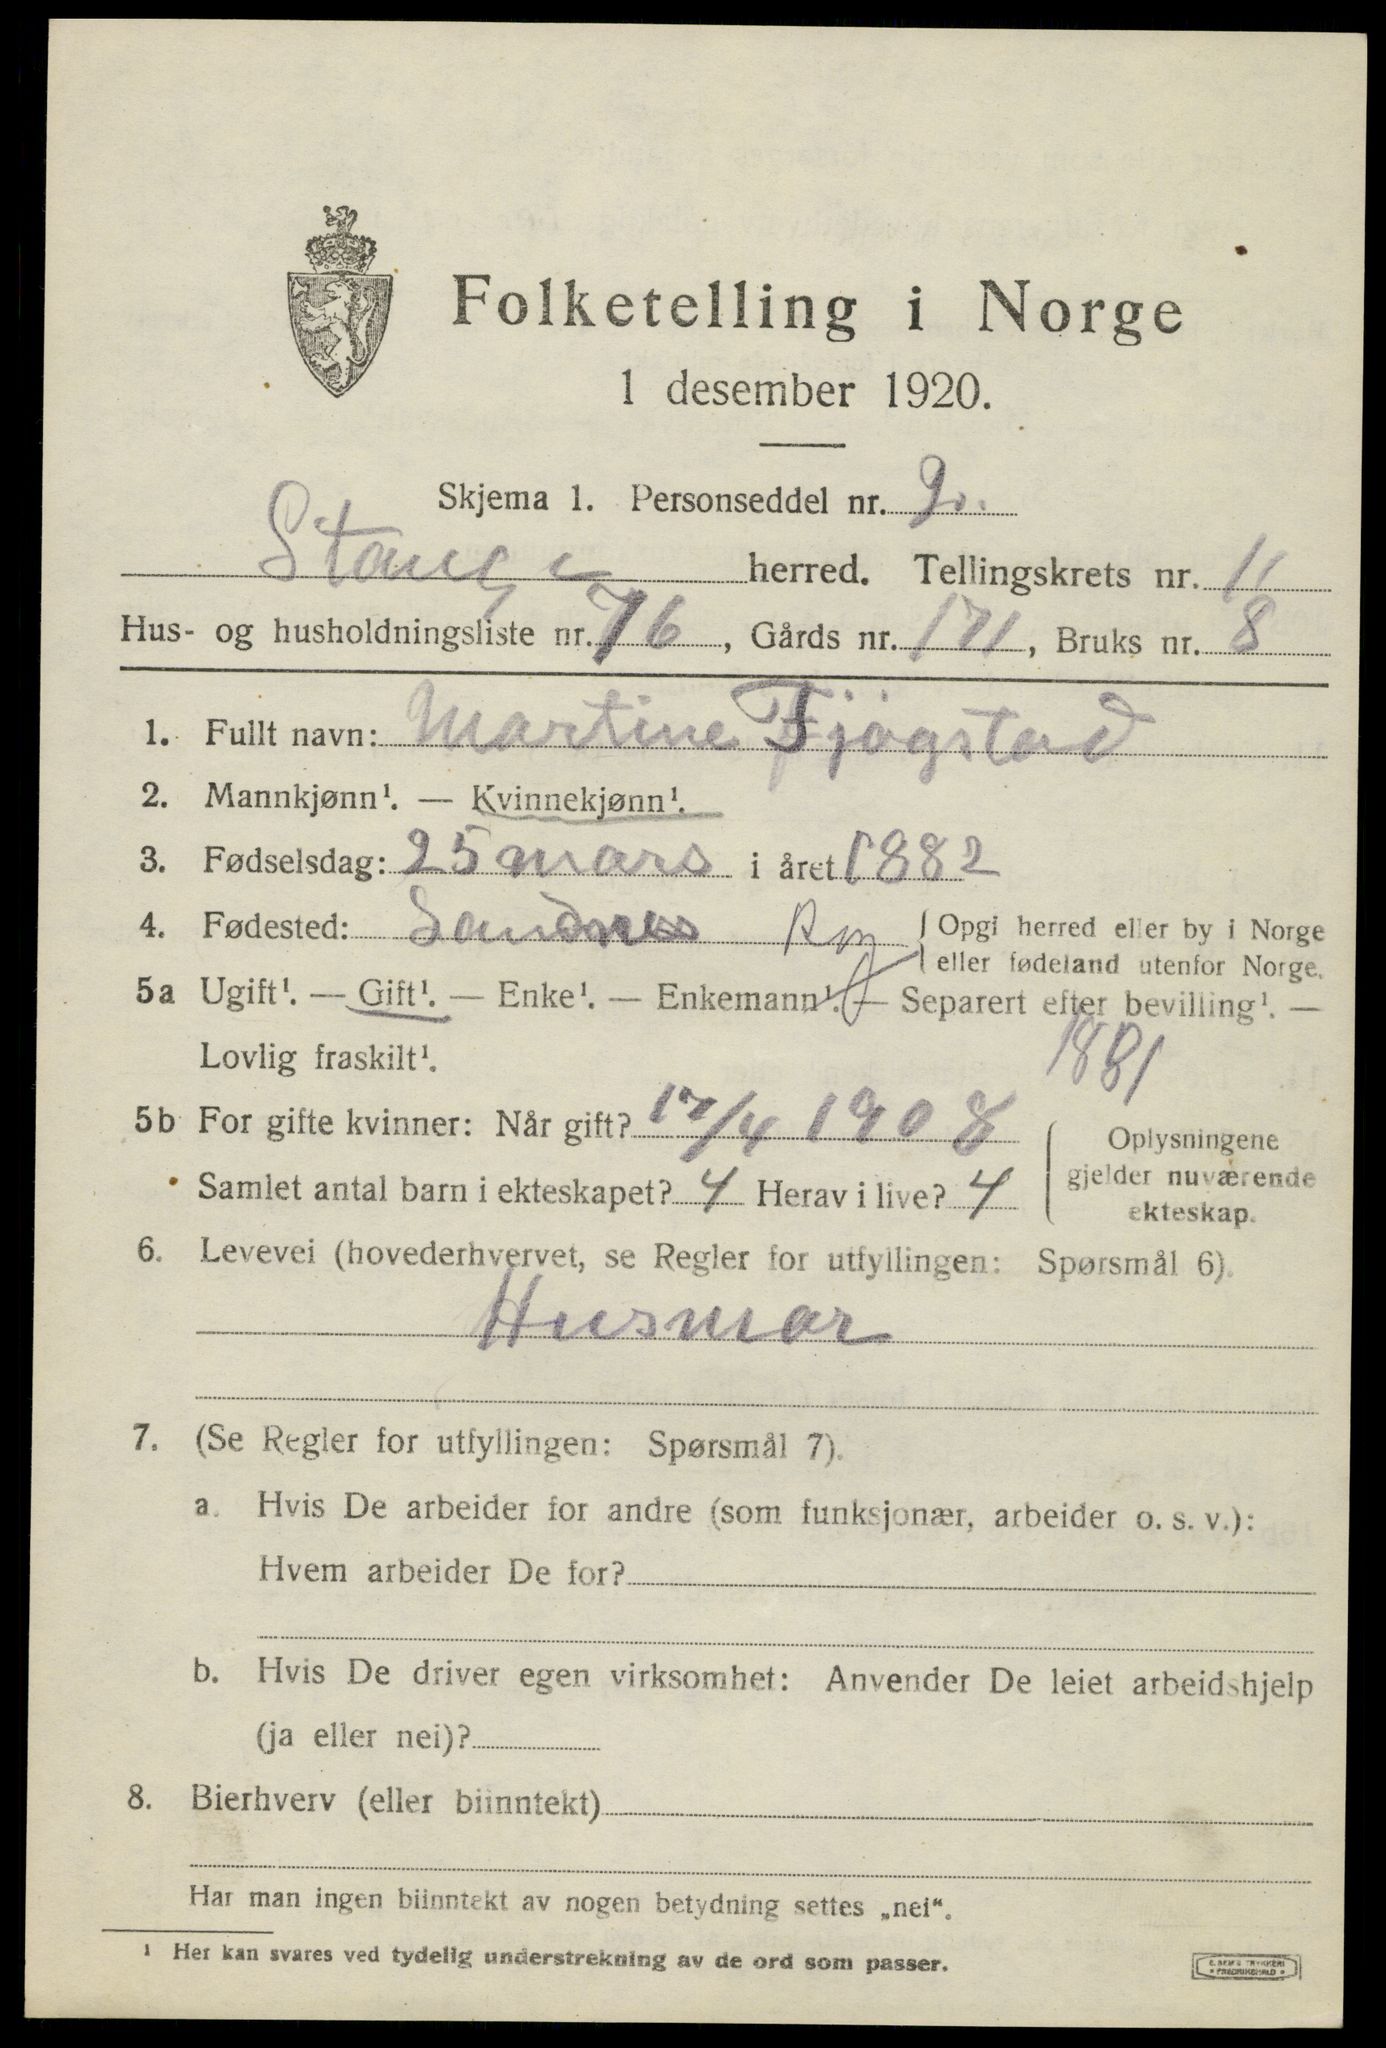 Folketelling i Norge
1 desember 1920.
Skjema 1. Personseddel nr. 2.
Stange herred. Tellingskrets nr. 11
Hus- og husholdningsliste nr. 76, Gårds nr. 171, Bruks nr. 8
1. Fullt navn: Martine Fjøgstad
2. Mannkjønn¹. — Kvinnekjønn¹.
3. Fødselsdag: 25 mars i året 1882
4. Fødested: Sandnes { Opgi herred eller by i Norge
eller fødeland utenfor Norge.
5a Ugift¹. — Gift¹. — Enke¹. — Enkemann¹. — Separert efter bevilling¹. —
Lovlig fraskilt¹.
1881
5b For gifte kvinner: Når gift? 17/4 1908
Samlet antal barn i ekteskapet? 4 Herav i live? 4
{ Oplysningene
gjelder nuværende
ekteskap.
6. Levevei (hovederhvervet, se Regler for utfyllingen: Spørsmål 6).
Husmor
7. (Se Regler for utfyllingen: Spørsmål 7).
a. Hvis De arbeider for andre (som funksjonær, arbeider o. s. v.):
Hvem arbeider De for?
b. Hvis De driver egen virksomhet: Anvender De leiet arbeidshjelp
(ja eller nei)?
8. Bierhverv (eller biinntekt)
Har man ingen biinntekt av nogen betydning settes „nei“.
¹ Her kan svares ved tydelig understrekning av de ord som passer.